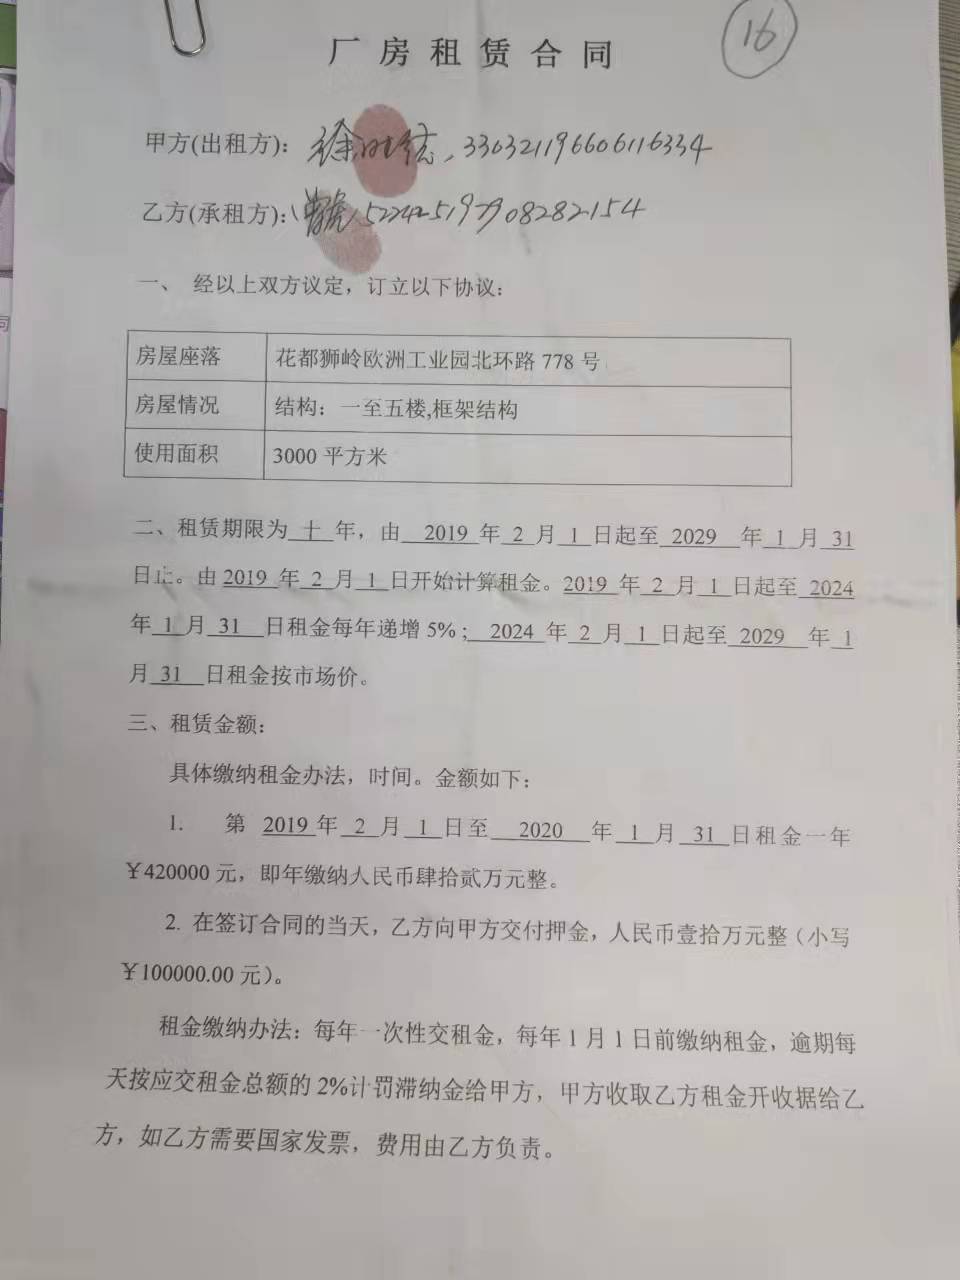 16
厂房租赁合同
甲方(出租方)：徐 , 330321196606116334
乙方(承租方)：
一、 经以上双方议定，订立以下协议：
房屋座落 花都狮岭欧洲工业园北环路 778 号
房屋情况 结构：一至五楼,框架结构
使用面积 3000 平方米
二、租赁期限为 十 年，由 2019 年 2 月 1 日起至 2029 年 1 月 31
日止。由 2019 年 2 月 1 日开始计算租金。2019 年 2 月 1 日起至 2024
年 1 月 31 日租金每年递增 5%； 2024 年 2 月 1 日起至 2029 年 1
月 31 日租金按市场价。
三、租赁金额：
具体缴纳租金办法，时间。金额如下：
1. 第 2019 年 2 月 1 日至 2020 年 1 月 31 日租金一年
￥420000 元，即年缴纳人民币肆拾贰万元整。
2. 在签订合同的当天，乙方向甲方交付押金，人民币壹拾万元整（小写
￥100000.00 元）。
租金缴纳办法：每年一次性交租金，每年 1 月 1 日前缴纳租金，逾期每
天按应交租金总额的 2%计罚滞纳金给甲方，甲方收取乙方租金开收据给乙
方，如乙方需要国家发票，费用由乙方负责。